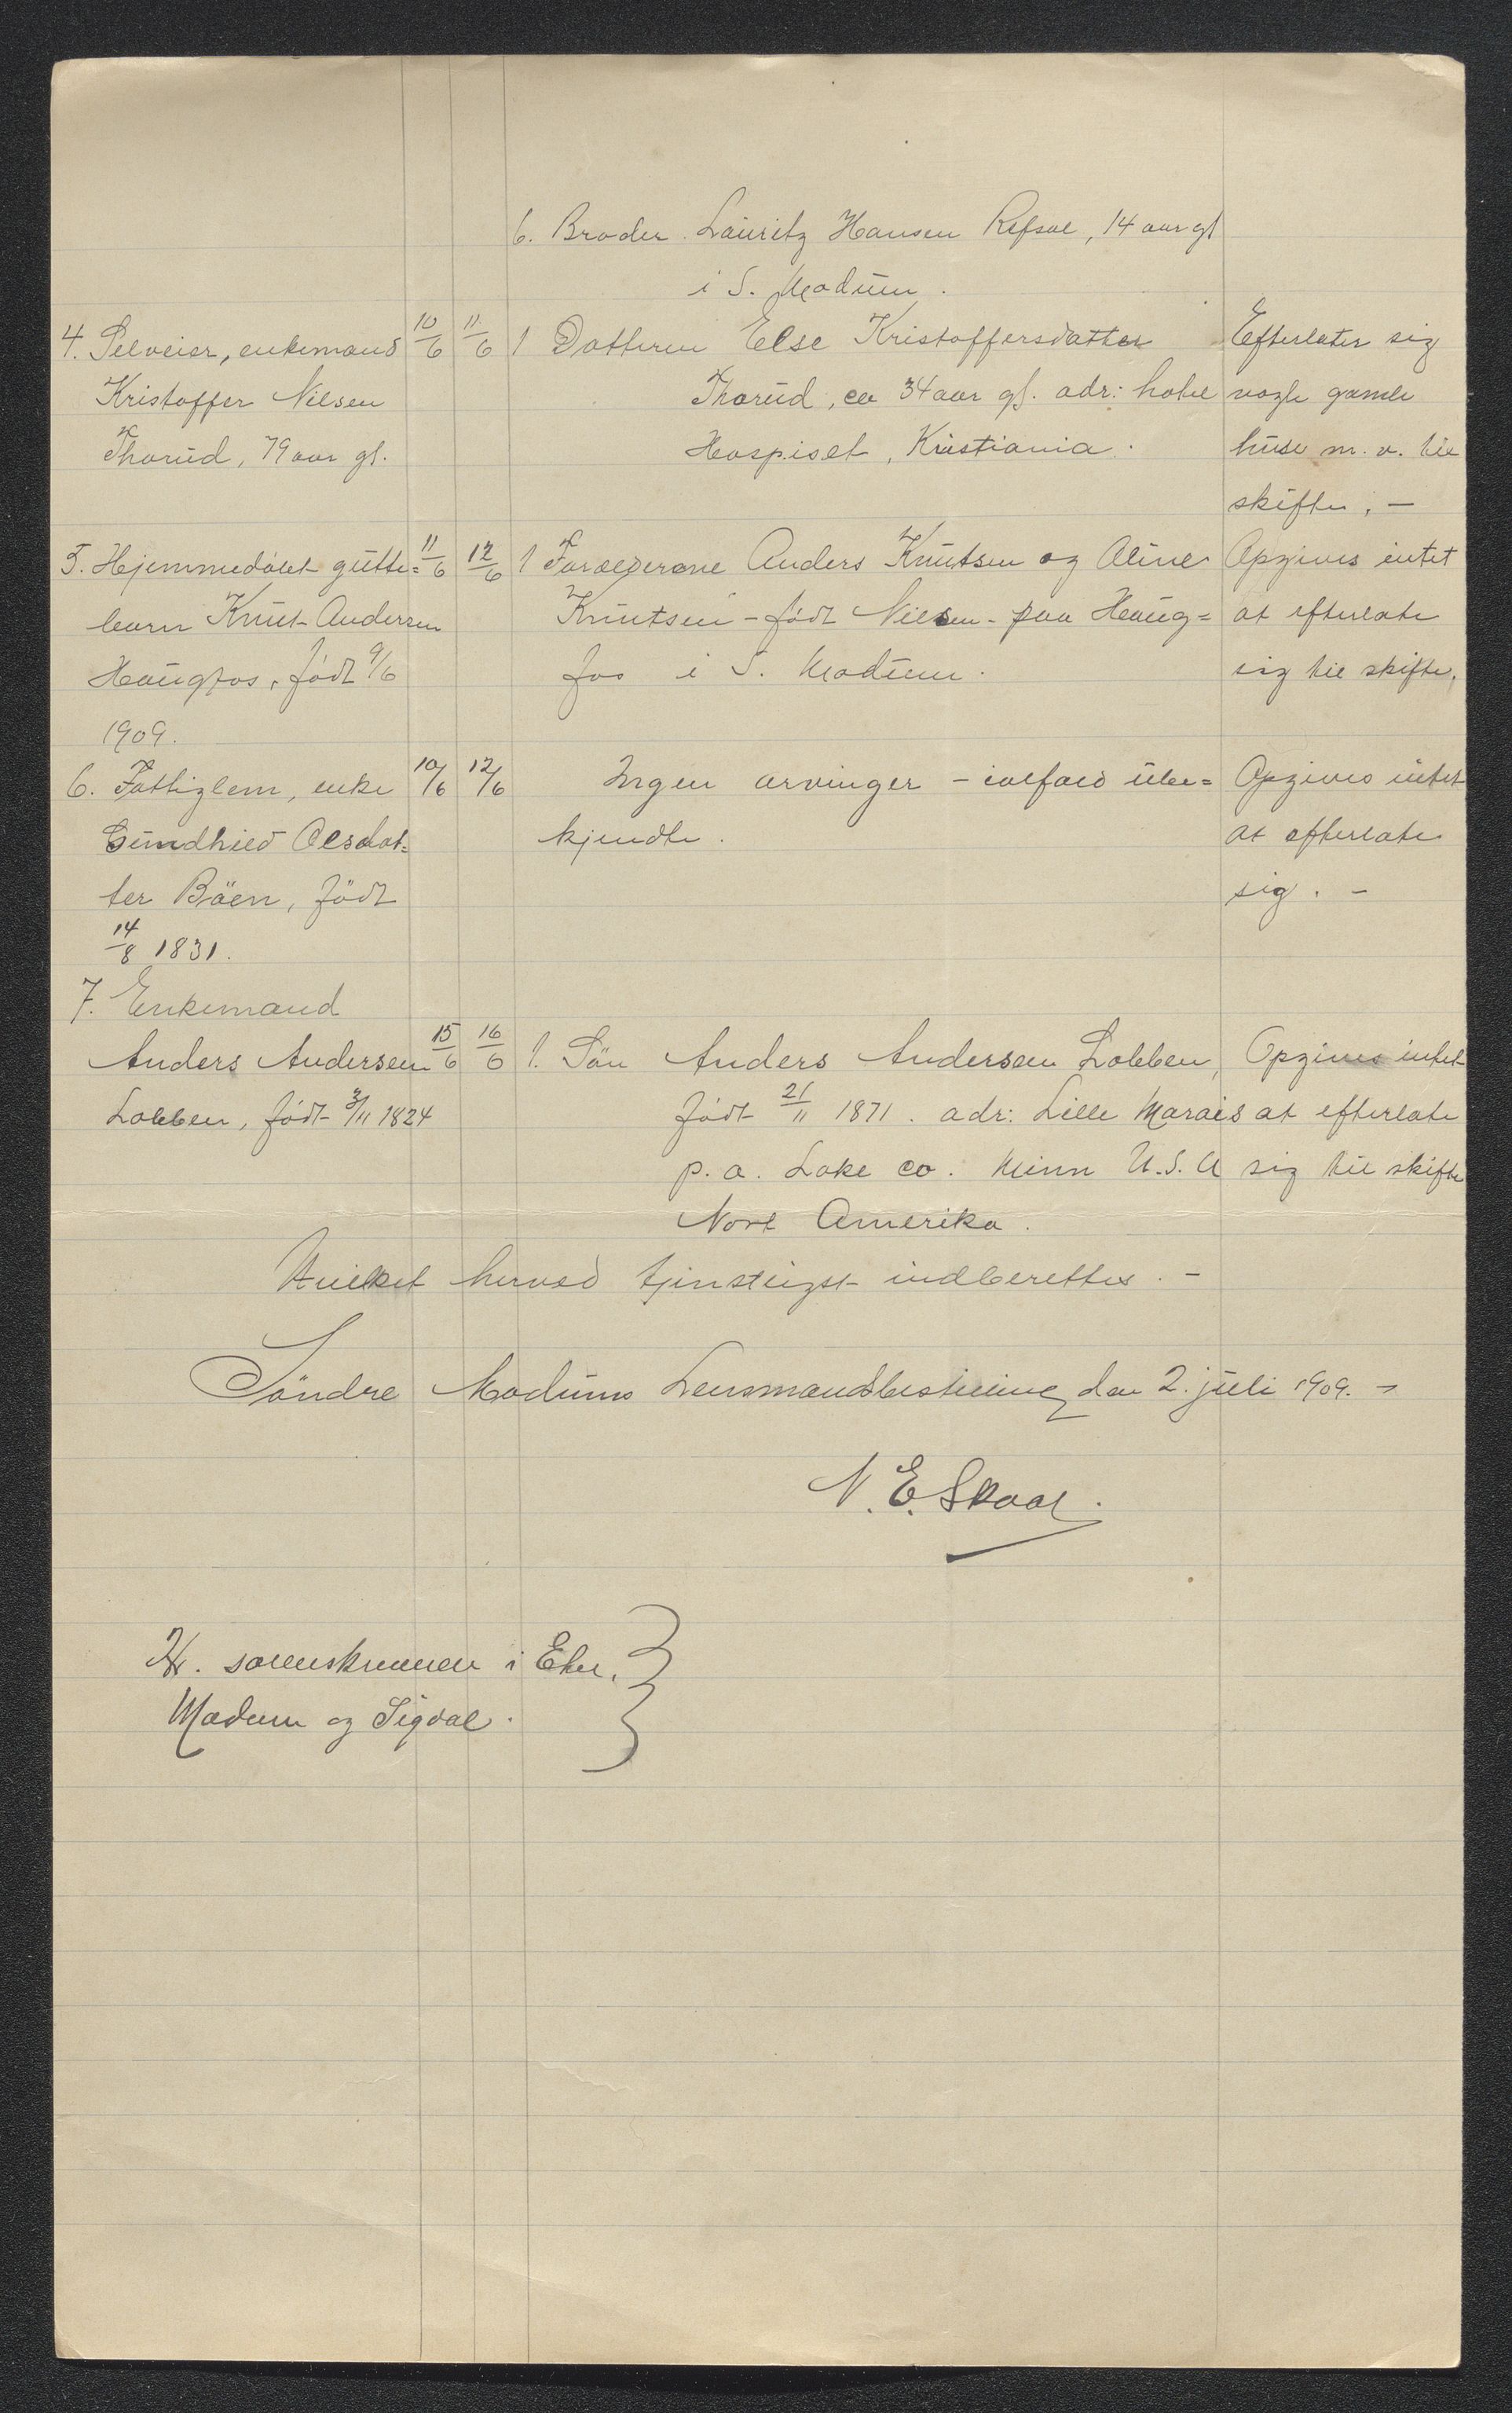 6. Broder Lauritz Hansen Refsal, 14 aar gl
i S. Modum.
4. Selveier, enkemand 10/6 11/6 1 Datteren Else Kristoffersdatter Efterlater sig
Kristoffer Nilsen Thorud, ca 34 aar gl. adr: hotel nogle gamle
Thorud, 79 aar gl. Hospiset, Kristiania. huse m. v. til
skifte. —
5. Hjemmedøbt gutte= 11/6 12/6 1 Forældrene Anders Knutsen og Aline Opgives intet
barn Knut Andersen Knutsen - født Nilsen - paa Haug= at efterlate
Haugfos, født 9/6 fos i S. Modum. sig til skifte.
1909.
6. Fattiglem, enke 10/6 12/6 Ingen arvinger - ialfald ube= Opgives intet
Gundhild Olsdat= kjendte. at efterlate
ter Bäen, födt sig. —
14/8 1831.
7. Enkemand
Anders Andersen 15/6 16/6 1. Sön Anders Andersen Lobben, Opgives intet
Lobben, født 3/11 1824 født 21/11 1871. adr: Lille Marais at efterlate
p. o. Lake co. Minn U.S.A sig til skifte
Nort Amerika.
Hvilket herved tjenstligst indberettes. —
Söndre Modums Lensmandsbestilling den 2. juli 1909. —
N. E. Skaar.
Hr. sorenskriveren i Eker,
Modum og Sigdal.